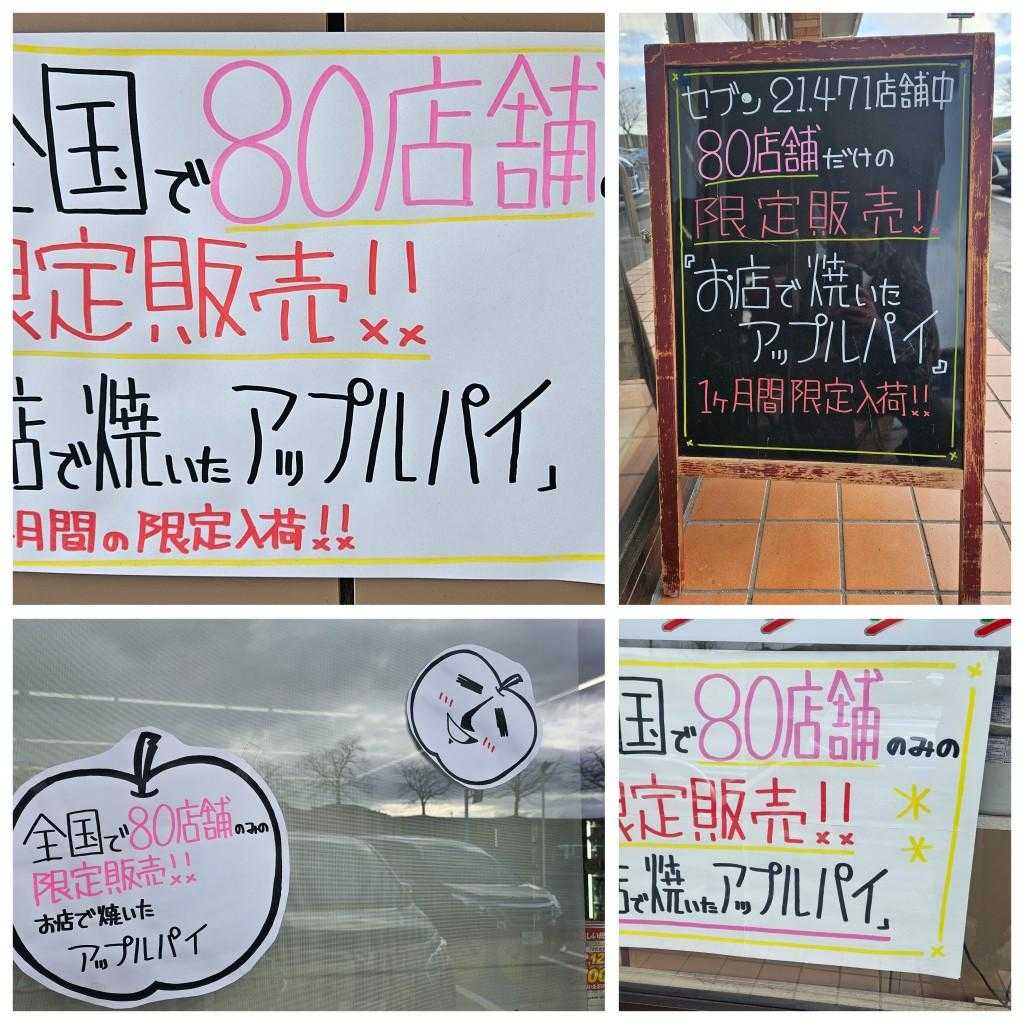 国で80店舗
限定販売!!
店で焼いたアップルパイ」
月間の限定入荷!!
セブン21.471店舗中
80店舗だけの
限定販売!!
『お店で焼いた
アップルパイ』
1ヶ月間限定入荷!!
全国で80店舗のみの
限定販売!!
お店で焼いた
アップルパイ
国で80店舗のみの
限定販売!!
店で焼いたアップルパイ」